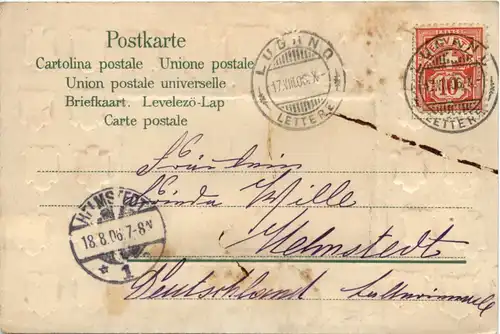 Postkarte
Cartolina postale Unione postale
Union postale universelle
Briefkaart. Levelezö-Lap
Carte postale
LUGANO
17.VIII.06.X-
LETTERE
LUGANO
10
LETTERE
Fräulein
Wille
HELMSTEDT
18.8.06.7-8N
* 1
Helmstedt
Deutschland